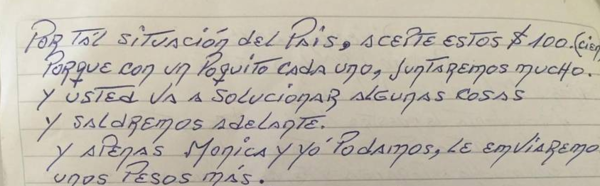 Por tál situación del País, acepte estos $100.(cien
Porque con un Poquito cada uno, juntaremos mucho.
y usted va a solucionar algunas cosas
y saldremos adelante.
y apenas Monica y yó Podamos, le enviaremo
unos Pesos más.